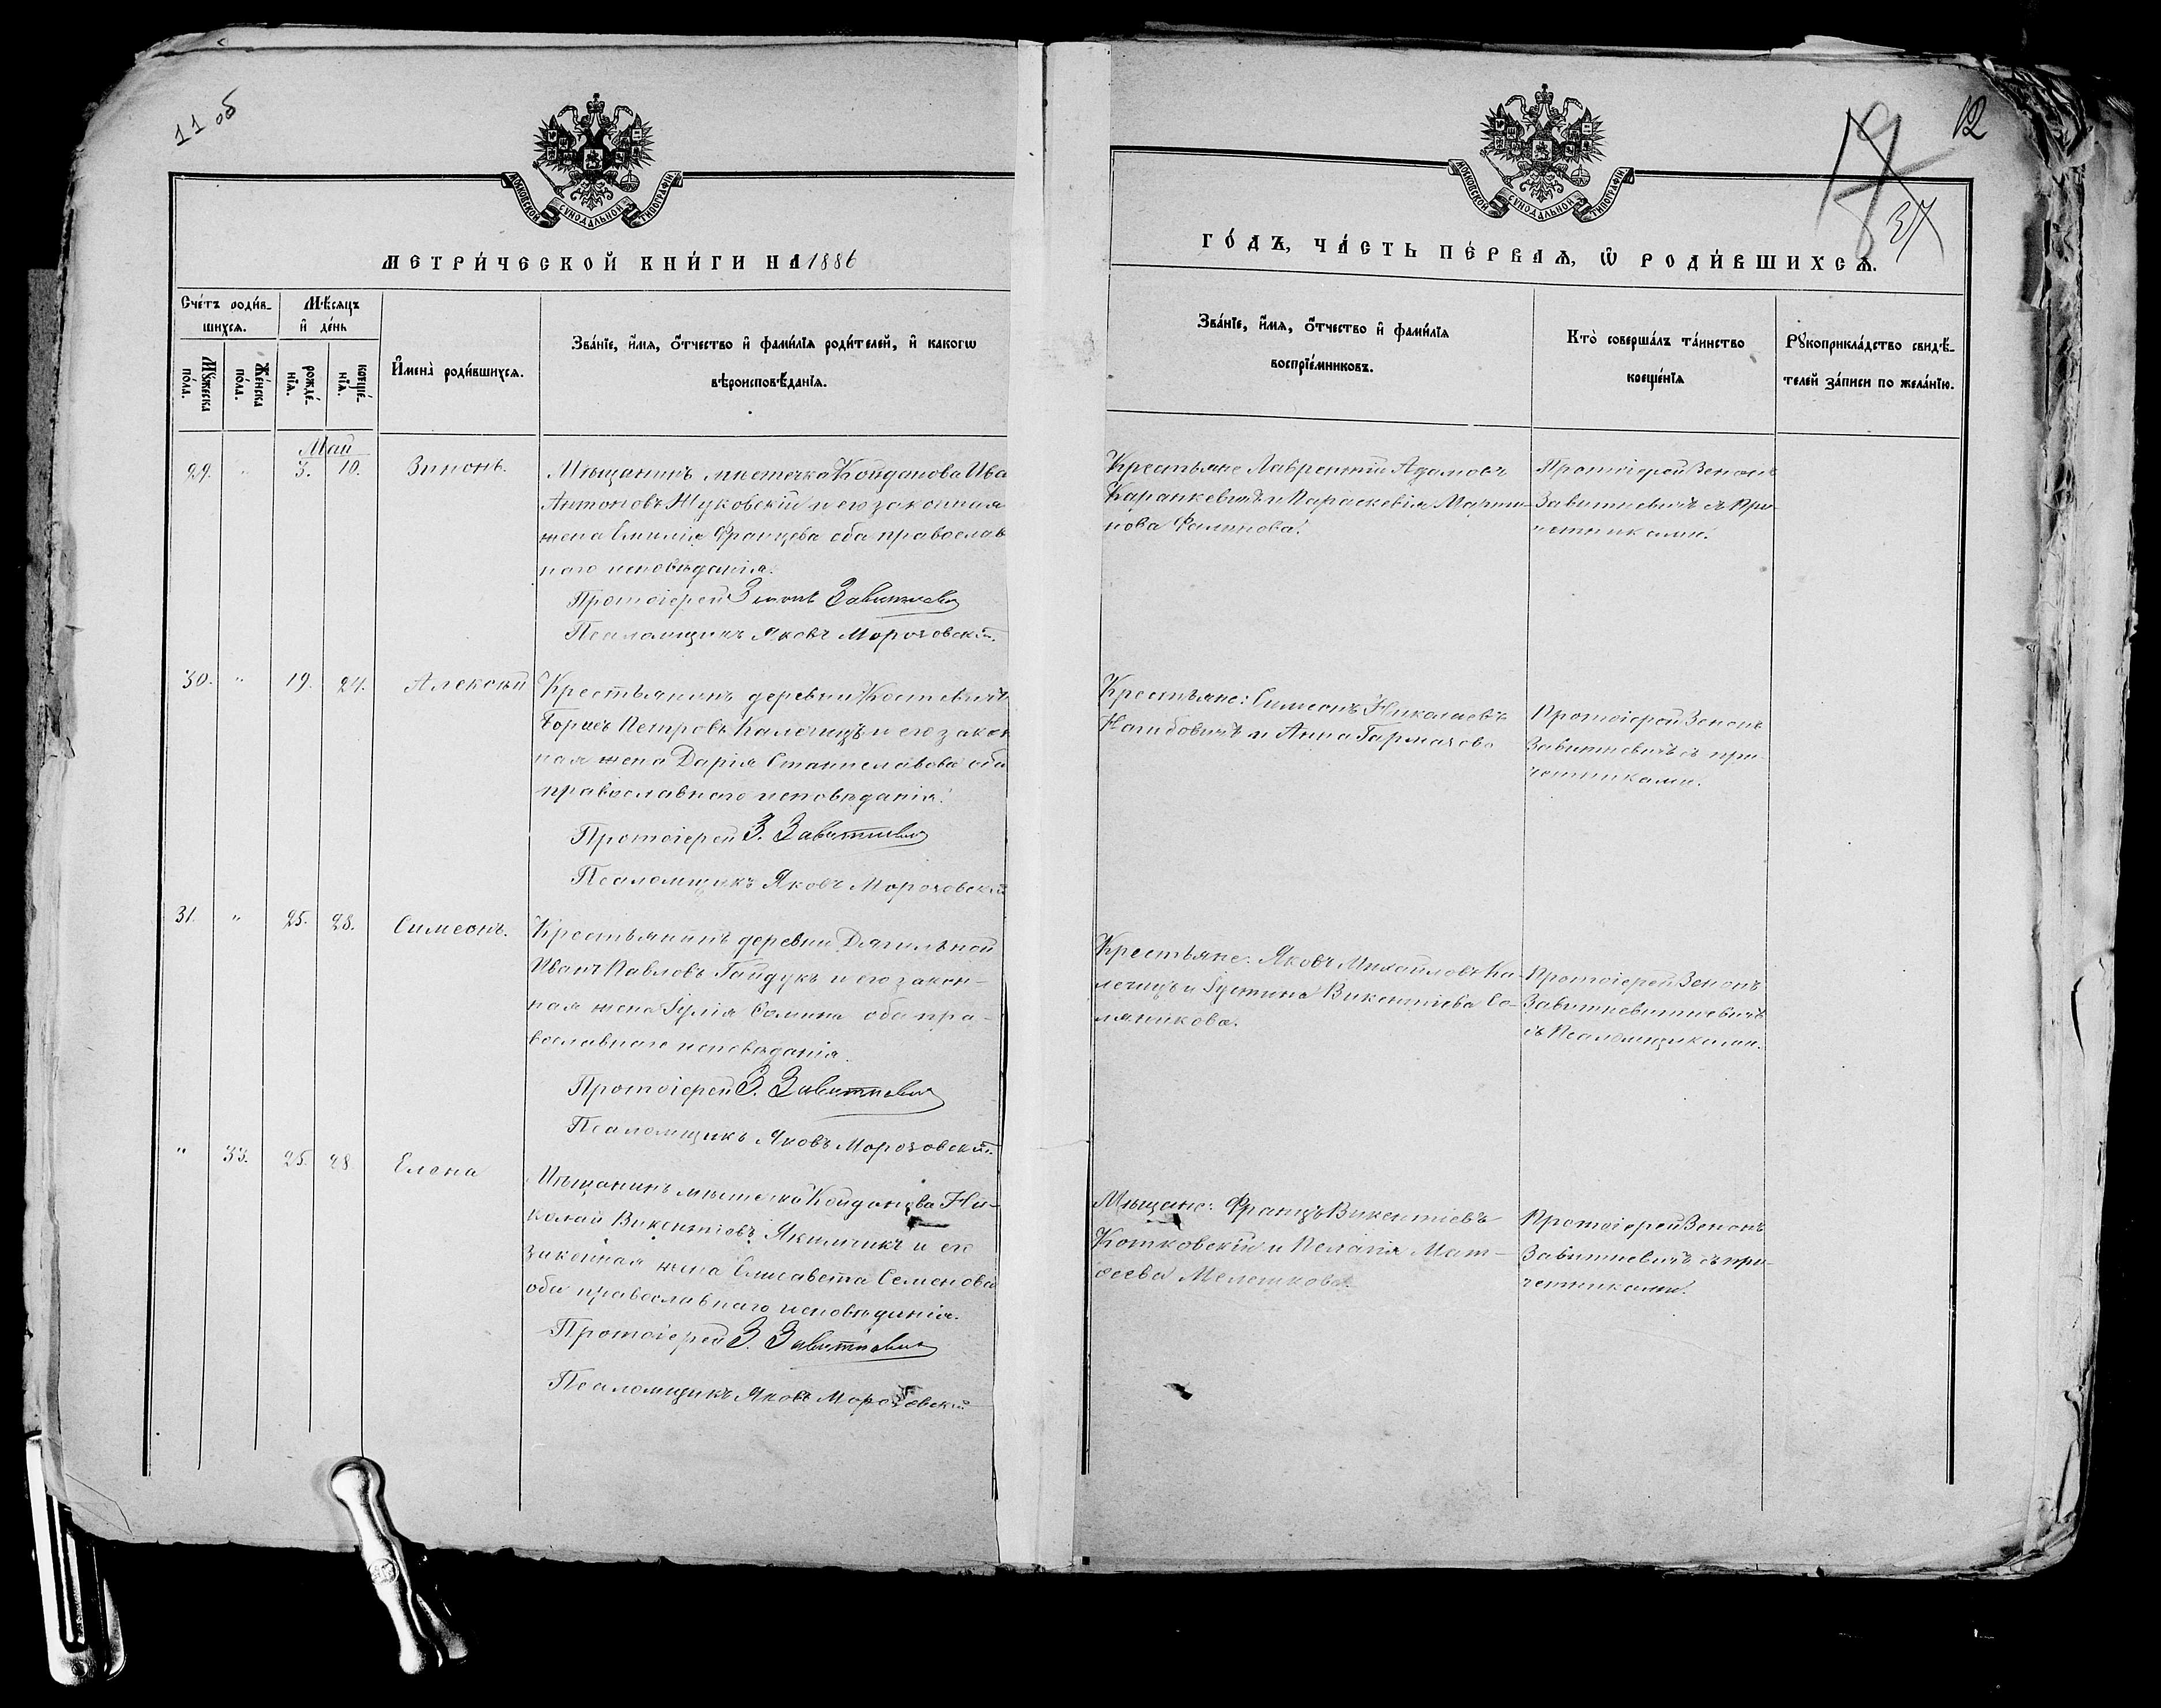 11 об
МОСКОВСКОЙ СѴНОДАЛЬНОЙ ТИПОГРАФІИ
МЕТРИ́ЧЕСКОЙ КНИ́ГИ НА 1886
Сче́тъ роди́в-
шихсѧ.
Мѣ́сяцъ
и҆ де́нь
Мꙋ́жеска
по́ла.
Же́нска
по́ла.
рожде́-
нїѧ.
креще́-
нїѧ.
И҆мена̀ роди́вшихсѧ.
Зва́нїе, и҆́мѧ, ѻ҆́тчество и҆ фами́лїѧ роди́телей, и҆ како́гѡ
вѣроисповѣ́данїѧ.
Май
29. " 3. 10. Зинонъ.
Мѣщанинъ мѣстечка Койданова Ива
Антоновъ Жуковскій и его законная
жена Емилія Францева оба православ
наго исповѣданія.
Протоіерей Зенонъ Завитневич
Псаломщикъ Яковъ Морозовскій.
30. " 19. 24. Алексѣй
Крестьянинъ деревни Костевичъ
Борисъ Петровъ Калечицъ и его закон
ная жена Дарія Станиславова оба
православнаго исповѣданія.
Протоіерей З. Завитневич
Псаломщикъ Яковъ Морозовскій
31. " 25. 28. Симеонъ.
Крестьянинъ деревни Дягильной
Иванъ Павловъ Гайдукъ и его закон-
ная жена Іулія Ѳомина оба пра-
вославнаго исповѣданія.
Протоіерей З. Завитневич
Псаломщикъ Яковъ Морозовскій.
" 33. 25. 28. Елена
Мѣщанинъ мѣстечка Койданова Ни-
колай Викентіевъ Якимчикъ и его
законная жена Елисавета Семенова
оба православнаго исповѣданія.
Протоіерей З. Завитневич
Псаломщикъ Яковъ Морозовскій
12
37
МОСКОВСКОЙ СѴНОДАЛЬНОЙ ТИПОГРАФІИ
ГО́ДЪ, ЧА́СТЬ ПЕ́РВАѦ, Ѡ҆ РОДИ́ВШИХСѦ.
Зва́нїе, и҆́мѧ, ѻ҆́тчество и҆ фами́лїѧ
воспрїе́мниковъ.
Кто̀ соверша́лъ та́инство
креще́нїѧ
Рꙋкоприкла́дство свидѣ́-
телей за́писи по жела́нїю.
Крестьяне Лаврентій Адамовъ
Каранкевичъ и Параскевія Марти-
нова Фалинова.
Протоіерей Зенонъ
Завитневичъ съ При-
четниками.
Крестьяне: Симеонъ Николаевъ
Нагибовичъ и Анна Гармазова
Протоіерей Зенонъ
Завитневичъ съ при-
четниками.
Крестьяне: Яковъ Михайловъ Ка-
лечицъ и Іустина Викентіева Со-
ляникова.
Протоіерей Зенонъ
Завитневитневичъ
съ Псаломщиками.
Мѣщане: Францъ Викентіевъ
Котковскій и Пелагія Мат-
ѳеева Мелешкова.
Протоіерей Зенонъ
Завитневичъ съ при-
четниками.